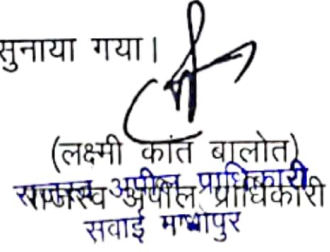 सुनाया गया।
(लक्ष्मी कांत बालोत)
राजस्व अपील प्राधिकारी
सवाई माधोपुर